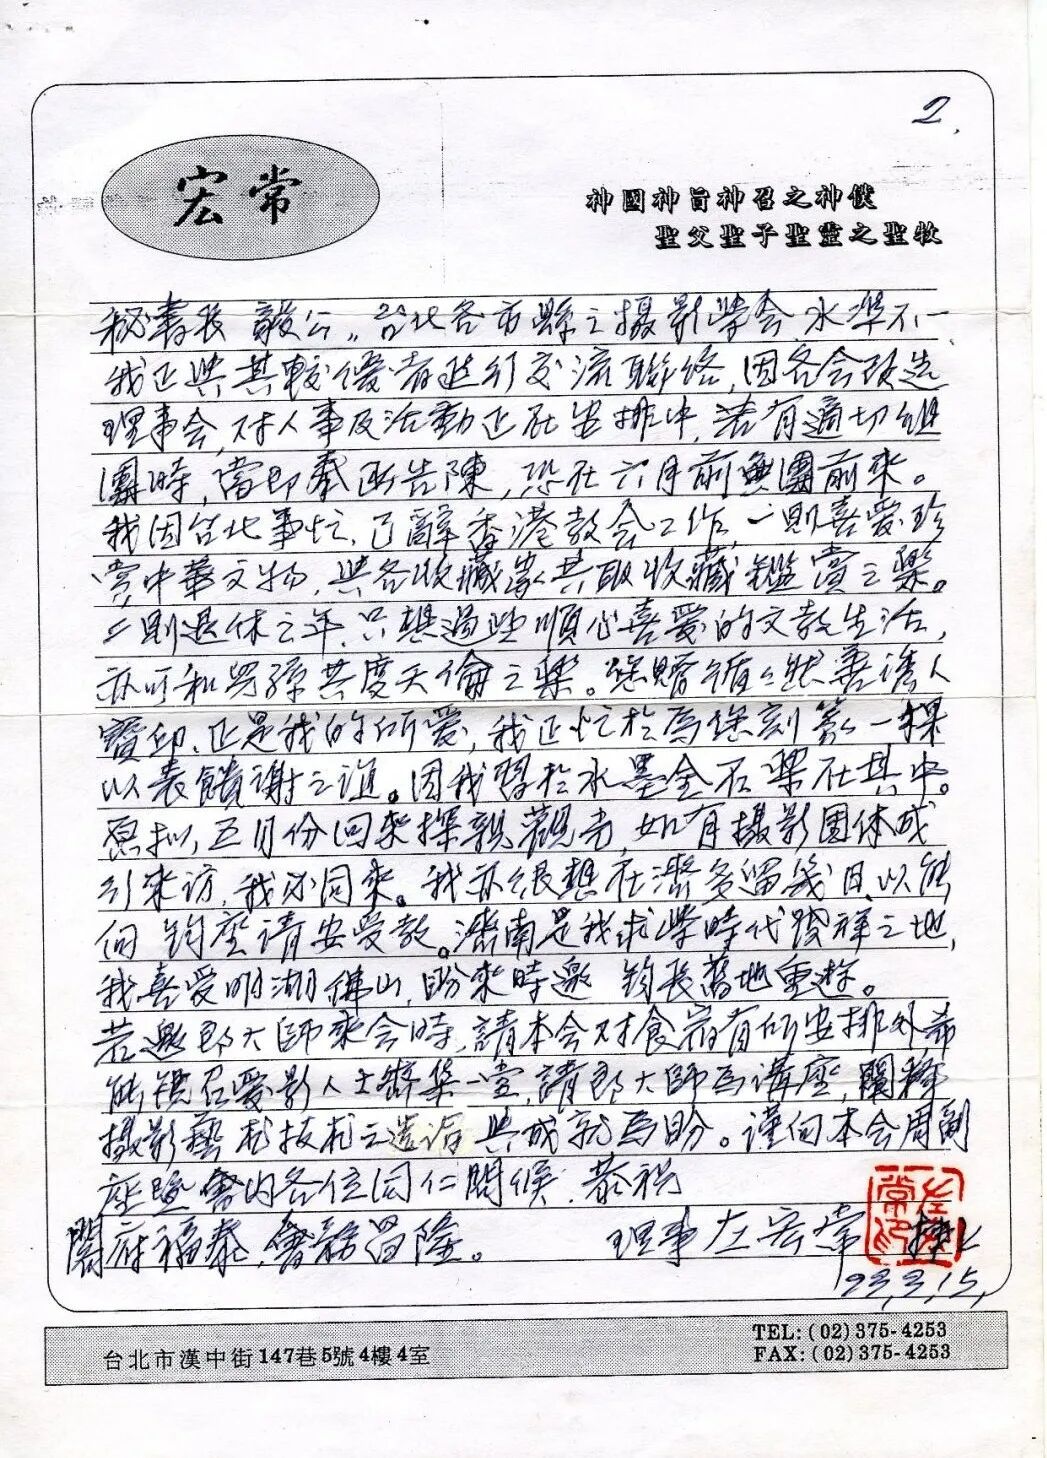 2.
宏常
神國神旨神召之神僕
聖父聖子聖靈之聖牧
秘書長 毅公:台北各市縣之攝影學會水準不一
我正與其較優者進行交流聯絡,因各會改選
理事會,对人事及活動正在安排中,若有適切組
團時,當即奉函告陳,恐在六月前興團前來。
我因台北事忙,已辭香港教会工作,一則喜愛珍
賞中華文物,與各收藏家共取收藏鑑賞之樂。
二則退休之年,只想過些順心喜愛的文教生活,
亦可和兒孫共度天倫之樂。您贈循循然善誘人
寶印,正是我的所愛,我正忙於為您刻 一
以表饋謝之誼。因我習於水墨金石樂在其中。
原拟,五月份回來探親觀光,如有攝影團体成
行來訪,我必同來。我亦很想在濟多留幾日,以能
向 鈞座請安受教。濟南是我求學時代發祥之地,
我喜愛明湖佛山,盼來時邀 鈞長舊地重遊。
若邀郎大師來会時,請本会对食宿有所安排外希
能領召愛影人士齊集一堂,請郎大師為講座,闡釋
攝影藝術技術之造詣與成就為盼。謹向本会周副
座暨會内各位同仁問候,恭祝
闔府福泰,會務昌隆。 理事左宏常 上
3,15,
台北市漢中街147巷5號4樓4室
TEL:(02)375-4253
FAX:(02)375-4253